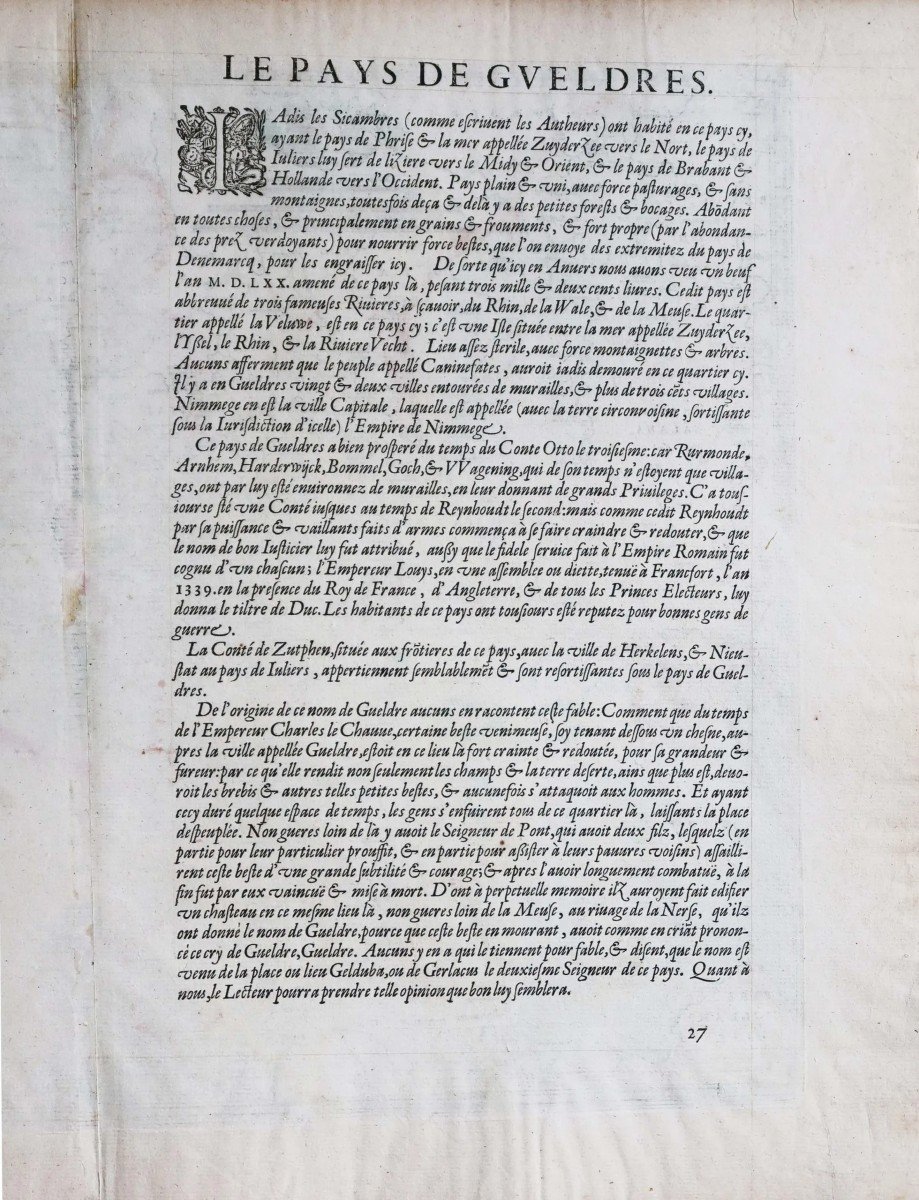 LE PAYS DE GVELDRES.
IAdis les Sicambres (comme escriuent les Autheurs) ont habité en ce pays cy,
ayant le pays de Phrise & la mer appellée Zuyderzee vers le Nort, le pays de
Iuliers luy sert de liziere vers le Midy & Orient, & le pays de Brabant &
Hollande vers l'Occident. Pays plain & vni, auec force pasturages, & sans
montaignes, toutesfois deça & delà y a des petites forests & bocages. Abōdant
en toutes choses, & principalement en grains & frouments, & fort propre (par l'abondan-
ce des prez verdoyants) pour nourrir force bestes, que l'on enuoye des extremitez du pays de
Denemarcq, pour les engraisser icy. De sorte qu'icy en Anuers nous auons veu vn beuf
l'an M. D. LXX. amené de ce pays là, pesant trois mille & deux cents liures. Cedit pays est
abbreuué de trois fameuses Riuieres, à sçauoir, du Rhin, de la Wale, & de la Meuse. Le quar-
tier appellé la Veluwe, est en ce pays cy; c'est vne Isle située entre la mer appellée Zuyderzee,
l'Yssel, le Rhin, & la Riuiere Vecht. Lieu assez sterile, auec force montaignettes & arbres.
Aucuns afferment que le peuple appellé Caninefates, auroit iadis demouré en ce quartier cy.
Il y a en Gueldres vingt & deux villes entourées de murailles, & plus de trois cēts villages.
Nimmege en est la ville Capitale, laquelle est appellée (auec la terre circonvoisine, sortissante
sous la Iurisdiction d'icelle) l'Empire de Nimmege.
Ce pays de Gueldres a bien prosperé du temps du Conte Otto le troisiesme: car Rurmonde,
Arnhem, Harderwijck, Bommel, Goch, & VVagening, qui de son temps n'estoyent que villa-
ges, ont par luy esté enuironnez de murailles, en leur donnant de grands Priuileges. C'a tous-
iourse sté vne Conté iusques au temps de Reynhoudt le second: mais comme cedit Reynhoudt
par sa puissance & vaillants faits d'armes commença à se faire craindre & redouter, & que
le nom de bon Iusticier luy fut attribué, aussy que le fidele seruice fait à l'Empire Romain fut
cognu d'vn chascun; l'Empereur Louys, en vne assemblee ou diette, tenuë à Francfort, l'an
1339. en la presence du Roy de France, d'Angleterre, & de tous les Princes Electeurs, luy
donna le tiltre de Duc. Les habitants de ce pays ont tousiours esté reputez pour bonnes gens de
guerre.
La Conté de Zutphen, située aux frōtieres de ce pays, auec la ville de Herkelens, & Nieu-
stat au pays de Iuliers, appertiennent semblablemēt & sont resortissantes sous le pays de Guel-
dres.
De l'origine de ce nom de Gueldre aucuns en racontent ceste fable: Comment que du temps
de l'Empereur Charles le Chauue, certaine beste venimeuse, soy tenant dessous vn chesne, au-
pres la ville appellée Gueldre, estoit en ce lieu là fort crainte & redoutée, pour sa grandeur &
fureur: par ce qu'elle rendit non seulement les champs & la terre deserte, ains que plus est, deuo-
roit les brebis & autres telles petites bestes, & aucunefois s'attaquoit aux hommes. Et ayant
cecy duré quelque espace de temps, les gens s'enfuirent tous de ce quartier là, laissants la place
despeuplée. Non gueres loin de là y auoit le Seigneur de Pont, qui auoit deux filz, lesquelz (en
partie pour leur particulier prouffit, & en partie pour assister à leurs pauures voisins) assailli-
rent ceste beste d'vne grande subtilité & courage; & apres l'auoir longuement combatuë, à la
fin fut par eux vaincuë & mise à mort. D'ont à perpetuelle memoire ilz auroyent fait edifier
vn chasteau en ce mesme lieu là, non gueres loin de la Meuse, au riuage de la Nerse, qu'ilz
ont donné le nom de Gueldre, pource que ceste beste en mourant, auoit comme en criāt pronon-
cé ce cry de Gueldre, Gueldre. Aucuns y en a qui le tiennent pour fable, & disent, que le nom est
venu de la place ou lieu Gelduba, ou de Gerlacus le deuxiesme Seigneur de ce pays. Quant à
nous, le Lecteur pourra prendre telle opinion que bon luy semblera.
27